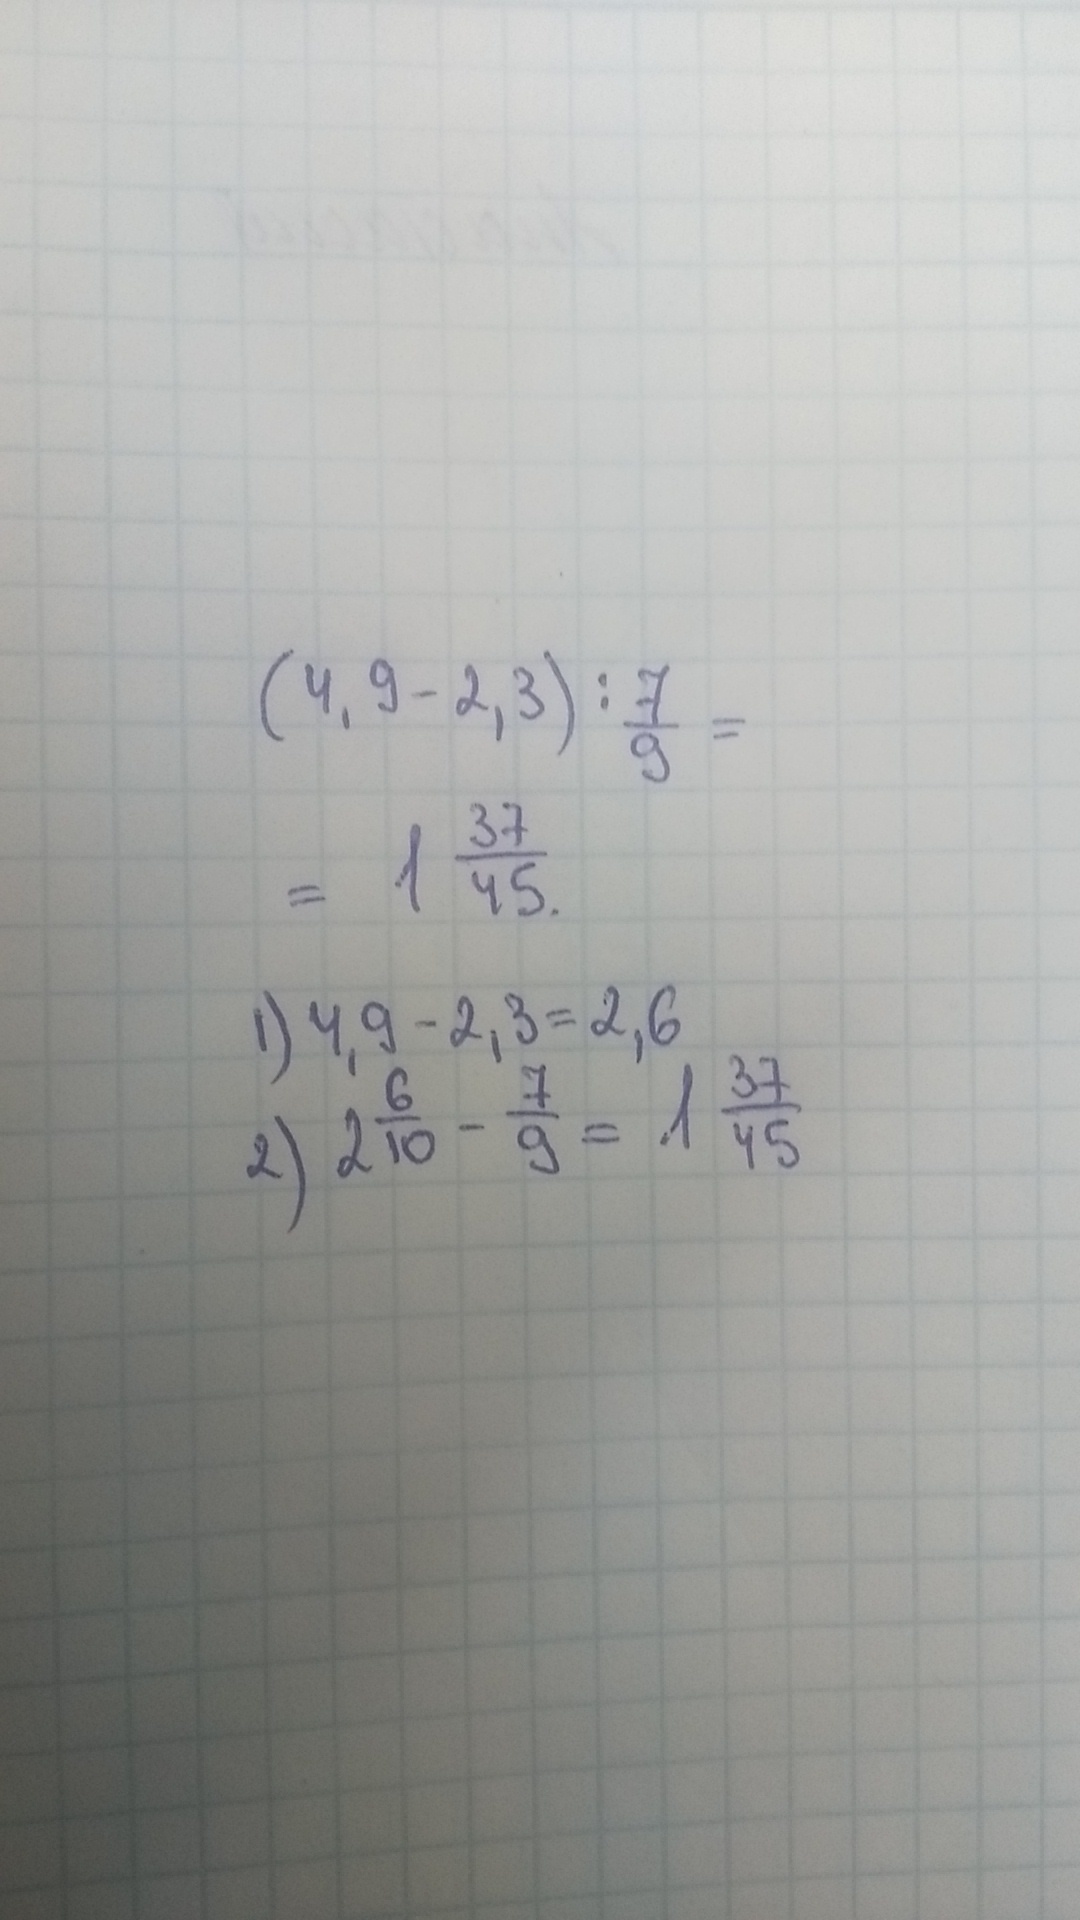 (4,9-2,3):7/9=
=1 37/45.
1) 4,9-2,3=2,6
2) 2 6/10 - 7/9 = 1 37/45